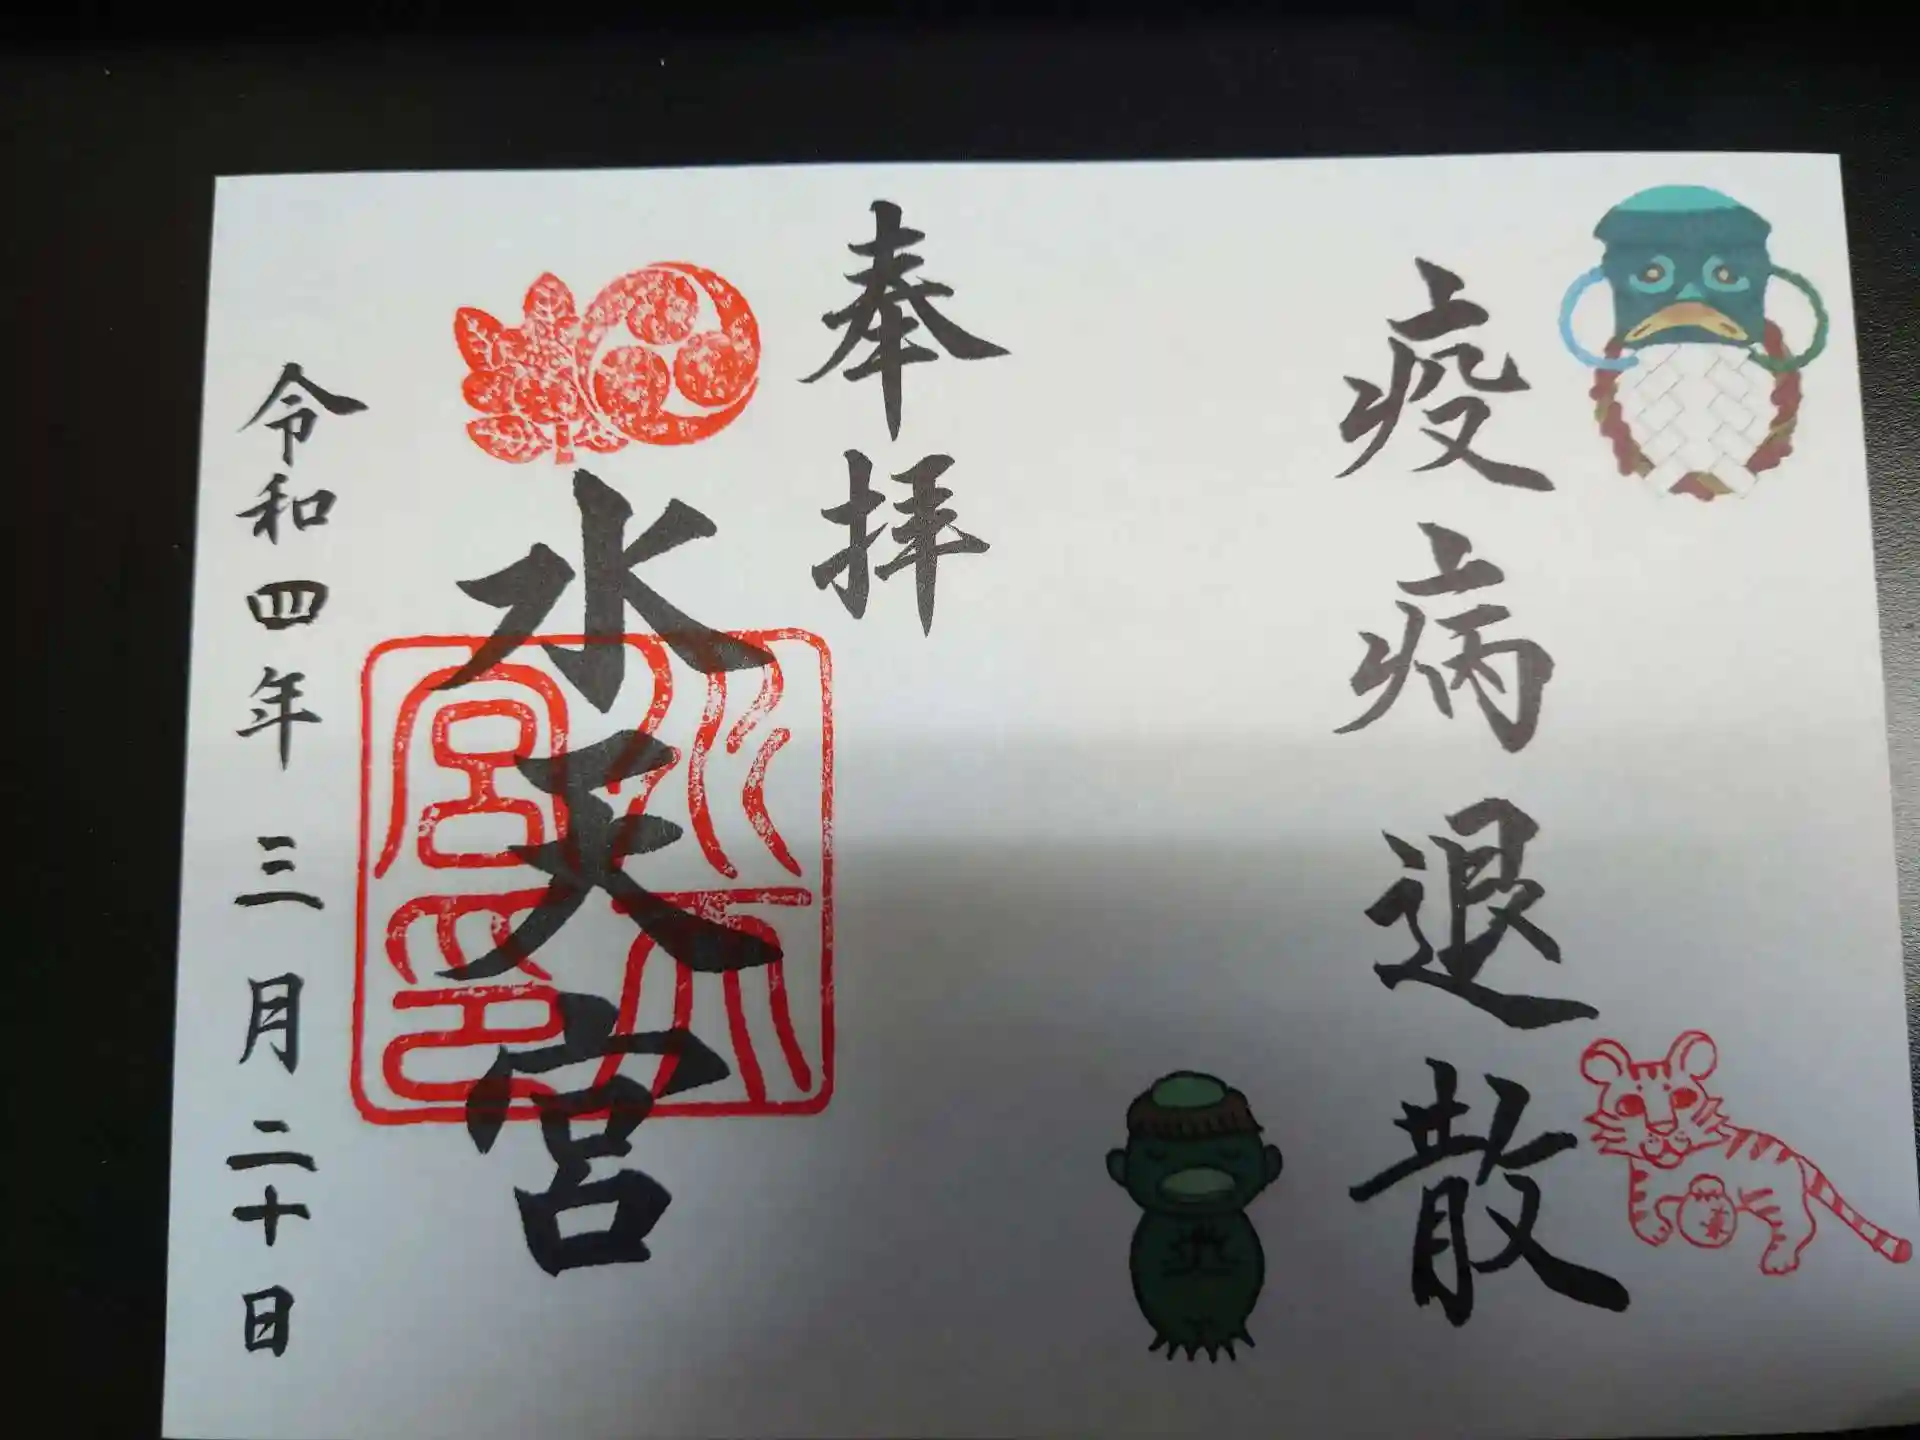 疫病退散
奉拝
水天宮
水天宮印
令和四年三月二十日